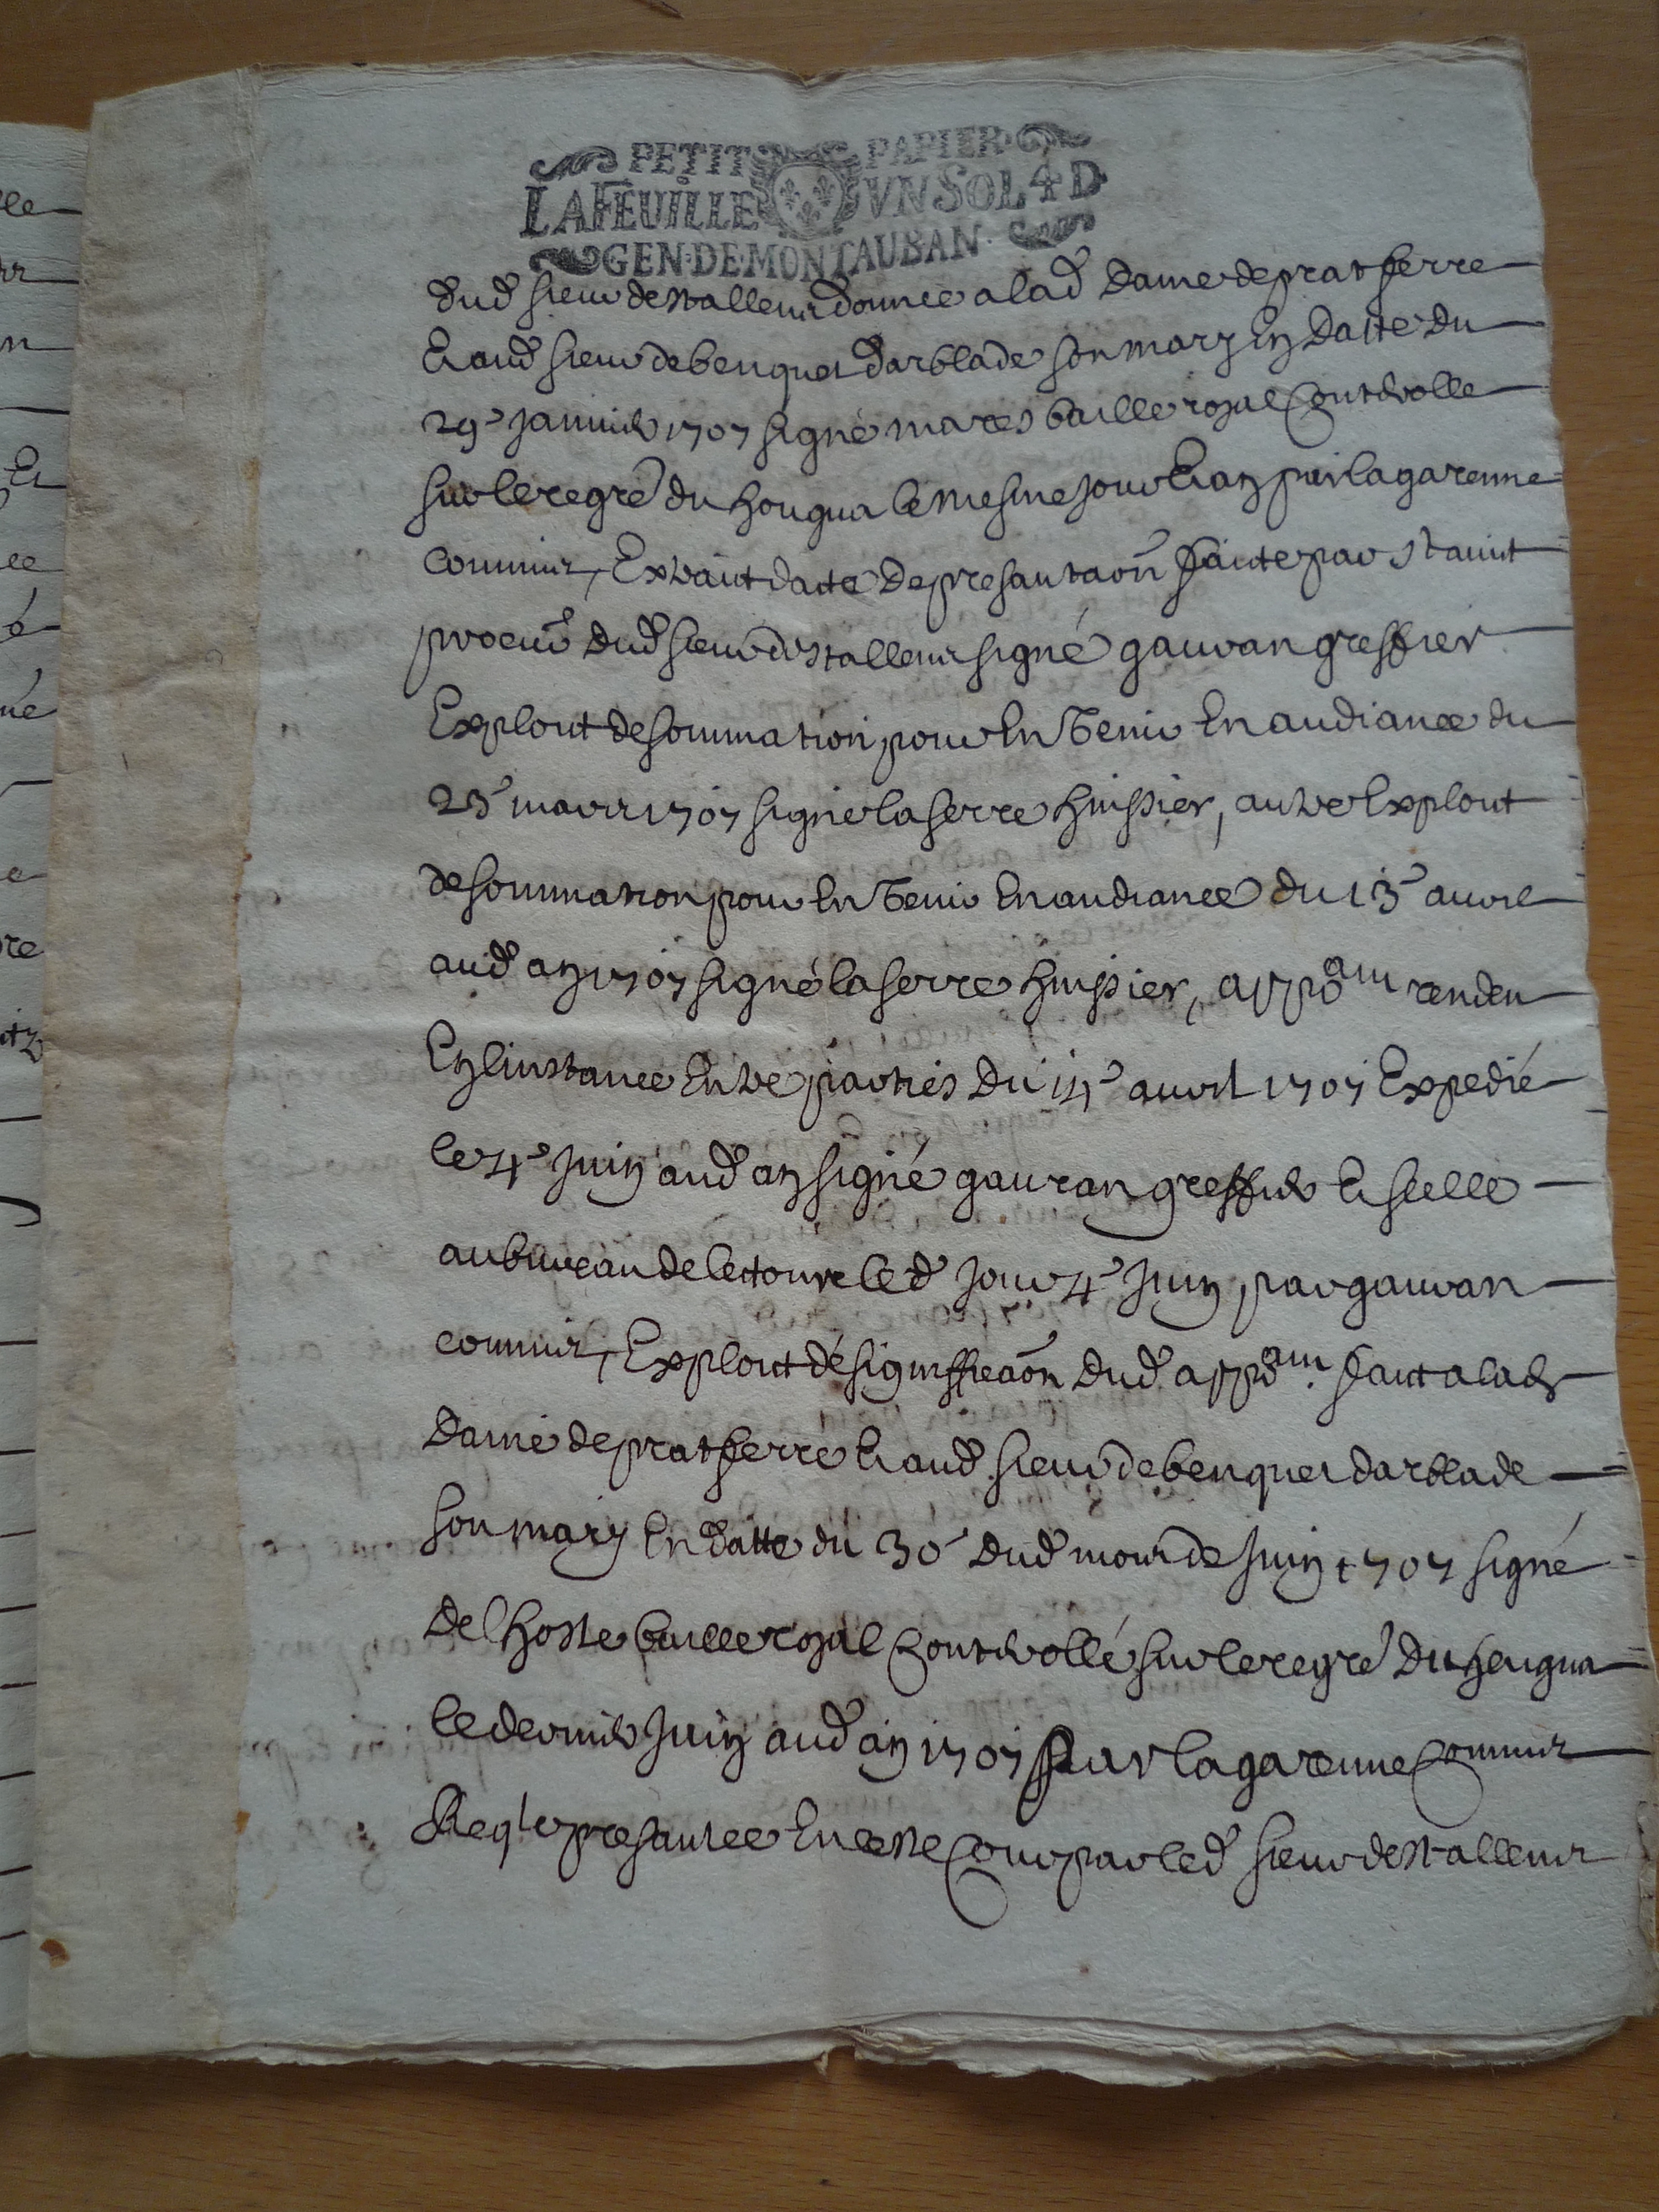 PETIT PAPIER
LA FEUILLE UN SOL 4 D
GEN·DE·MONTAUBAN·
dud sieur destallens donnee a lad dame de pratferre
Et aud sieur de benquet darblade son mary En datte du
29e janvier 1707 signé mares baille royal Controlle
sur le regre du hougua le mesme jour Et an par lagarenne
commis, Extrait dacte de presantaon faite par
procur dud sieur destallens signé gauran greffier
Exploit de sommation pour En Venir En audiance du
23e mars 1707 signé laserre huissier, autre Exploit
de sommation pour En Venir En audiance du 13e avril
aud an 1707 signé laserre huissier, appoam rendu
En linstance Entre parties du 14e avril 1707 Expedié
le 4e juin aud an signé gauran greffier Et scelle
au bureau de lectoure le d jour 4e juin par gauran
commis, Exploit de signiffieaon dud appoam fait a lad
dame de pratferre Et aud sieur de benquet darblade
son mary En datte du 30e dud mois de juin 1707 signé
delhoste baille royal Controllé sur le regre du hougua
le dernier juin aud an 1707 Par lagarenne Commis
Reqte presantee En ceste Cour par led sieur destallens
ee
n
Et
ee
é
né
e
re